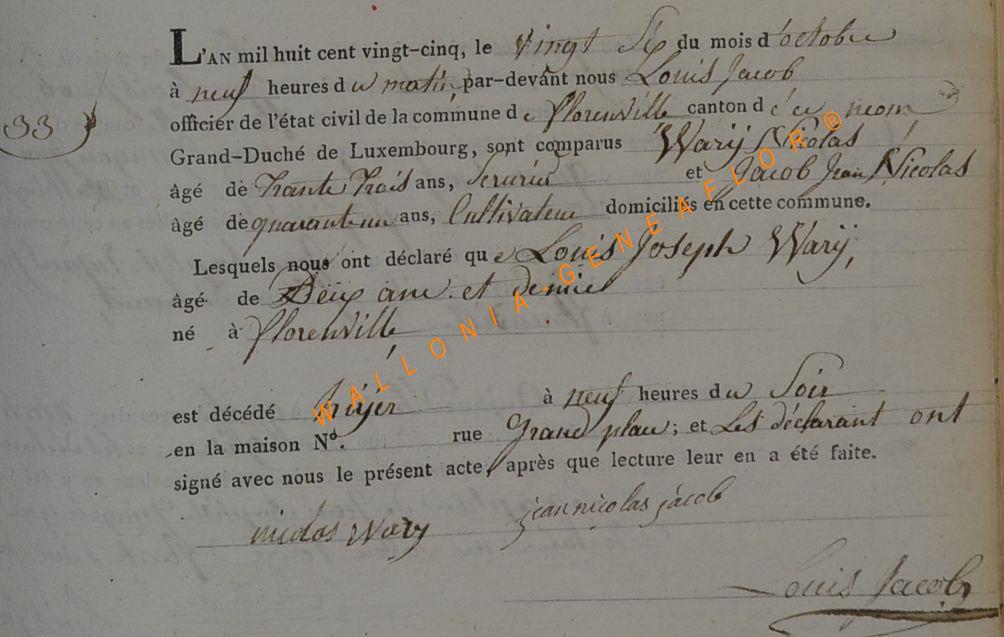 L'AN mil huit cent vingt-cinq, le vingt Six du mois d'octobre
à neuf heures du matin, par-devant nous Louis Jacob
33
officier de l'état civil de la commune de florenville canton de ce nom
Grand-Duché de Luxembourg, sont comparus Warij Nicolas
âgé de trante trois ans, Serurié et Jacob Jean Nicolas
âgé de quarante un ans, Cultivateur domiciliés en cette commune.
Lesquels nous ont déclaré que Louis Joseph Warij,
âgé de Deux ans et demie
né à florenville
est décédé hijer à neuf heures du Soir
en la maison N°. rue Grand place; et Les déclarant ont
signé avec nous le présent acte, après que lecture leur en a été faite.
nicolas wary jean nicolas jacob
Louis Jacob
WALLONIA-GENEAFLOR®